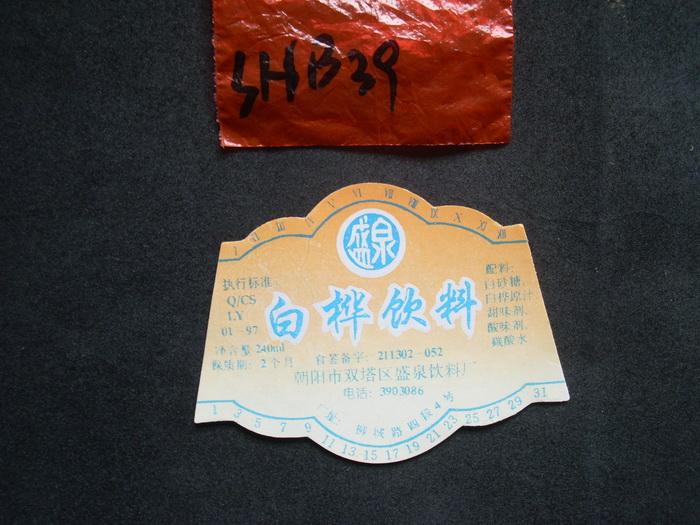 SHB39
I II III IV V VI VII VIII IX X XI XII
盛泉
白桦饮料
执行标准:
Q/CS
LY
01-97
净含量 240ml
保质期: 2个月
配料:
白砂糖、
白桦原汁、
甜味剂、
酸味剂、
碳酸水
食签备字: 211302-052
朝阳市双塔区盛泉饮料厂
电话: 3903086
厂址: 柳城路四段4号
1 3 5 7 9 11 13 15 17 19 21 23 25 27 29 31